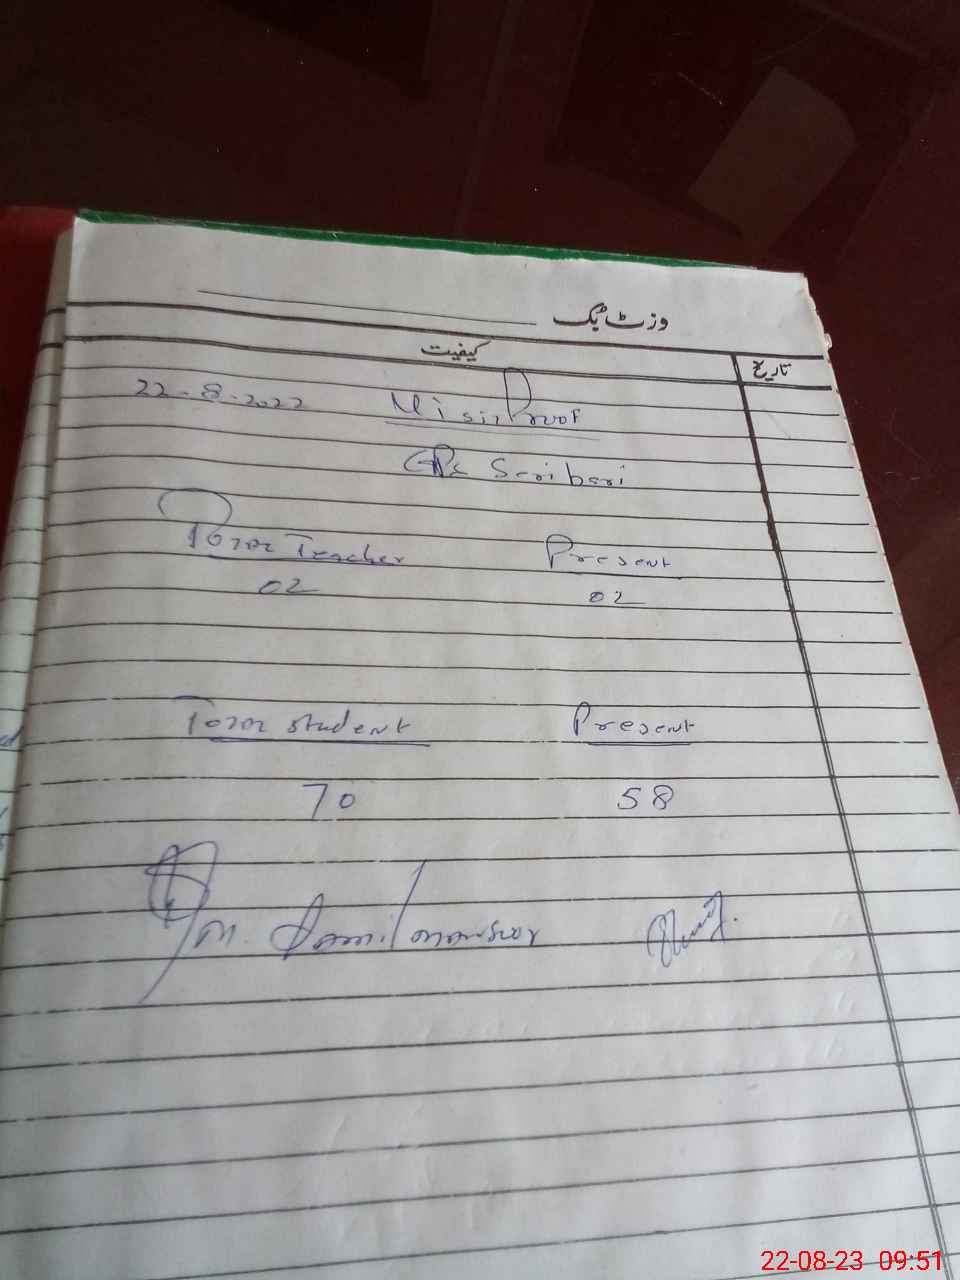 وزٹ بک
کیفیت تاریخ
22-8-2022 Visit Proof
GPS Seri bari
Total Teacher Present
02 02
Total Student Present
70 58
M.
22-08-23 09:51